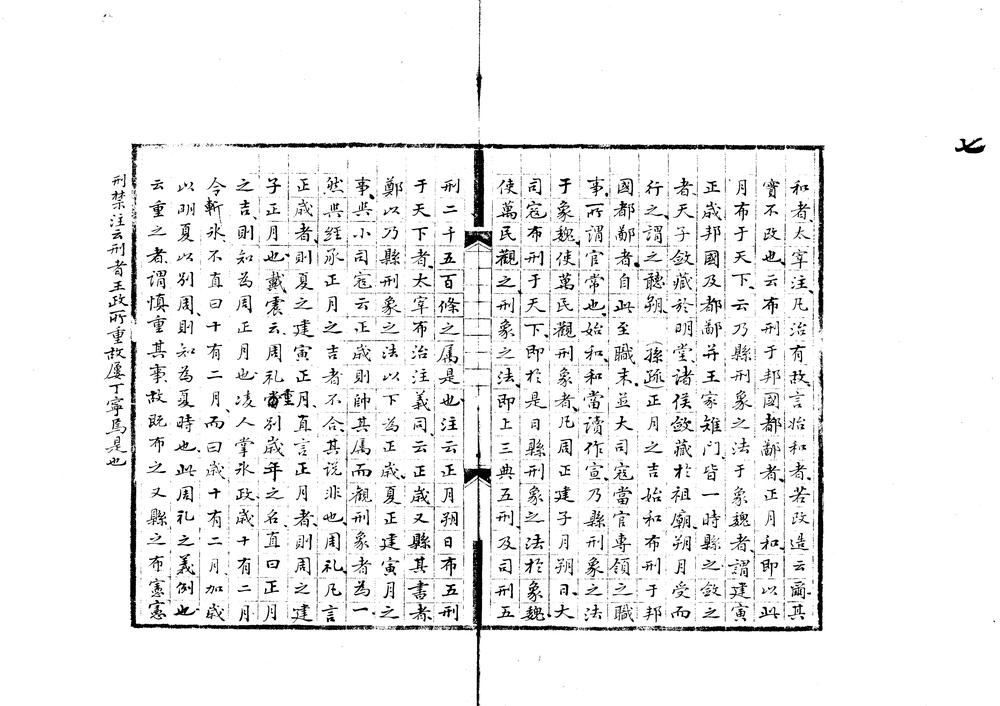 七
和者太宰注凡治有故言始和者若改造云爾其
實不改也云布刑于邦國都鄙者正月和即以此
月布于天下云乃縣刑象之法于象魏者謂建寅
正歲邦國及都鄙并王家雉門皆一時縣之斂之
者天子斂藏於明堂諸侯斂藏於祖廟朔月受而
行之謂之聽朔(孫疏)正月之吉始和布刑于邦
國都鄙者自此至職末並大司寇當官專領之職
事所謂官常也始和和當讀作宣乃縣刑象之法
于象魏使萬民觀刑象者凡周正建子月朔日大
司寇布刑于天下即於是日縣刑象之法於象魏
使萬民觀之刑象之法即上三典五刑及司刑五
刑二千五百條之属是也注云正月朔日布五刑
于天下者太宰布治注義同云正歲又縣其書者
鄭以乃縣刑象之法以下為正歲夏正建寅月之
事與小司寇云正歲則帥其属而觀刑象者為一
然與經承正月之吉者不合其說非也周礼凡言
正歲者則夏之建寅正月直言正月者則周之建
子正月也戴震云周礼重別歲年之名直曰正月
之吉則知為周正月也凌人掌氷政歲十有二月
令斬氷不直曰十有二月而曰歲十有二月加歲
以明夏以別周則知為夏時也此周礼之義例也
云重之者謂慎重其事故既布之又縣之布憲憲
刑禁注云刑者王政所重故屢丁寧焉是也